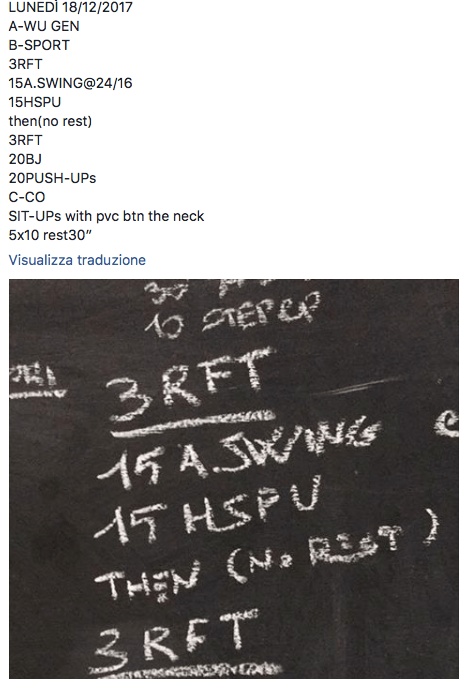 LUNEDÌ 18/12/2017
A-WU GEN
B-SPORT
3RFT
15A.SWING@24/16
15HSPU
then(no rest)
3RFT
20BJ
20PUSH-UPs
C-CO
SIT-UPs with pvc btn the neck
5x10 rest30”
Visualizza traduzione
30
10 STEP UP
3RFT
15 A.SWING
15 HSPU
THEN (No REST)
3RFT